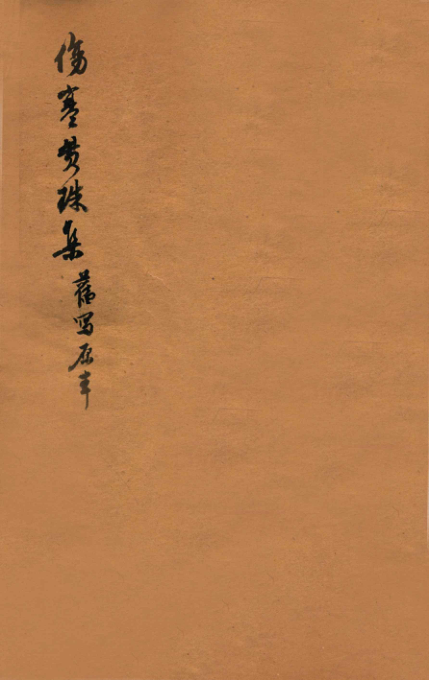 傷寒貫珠集 舊寫原本